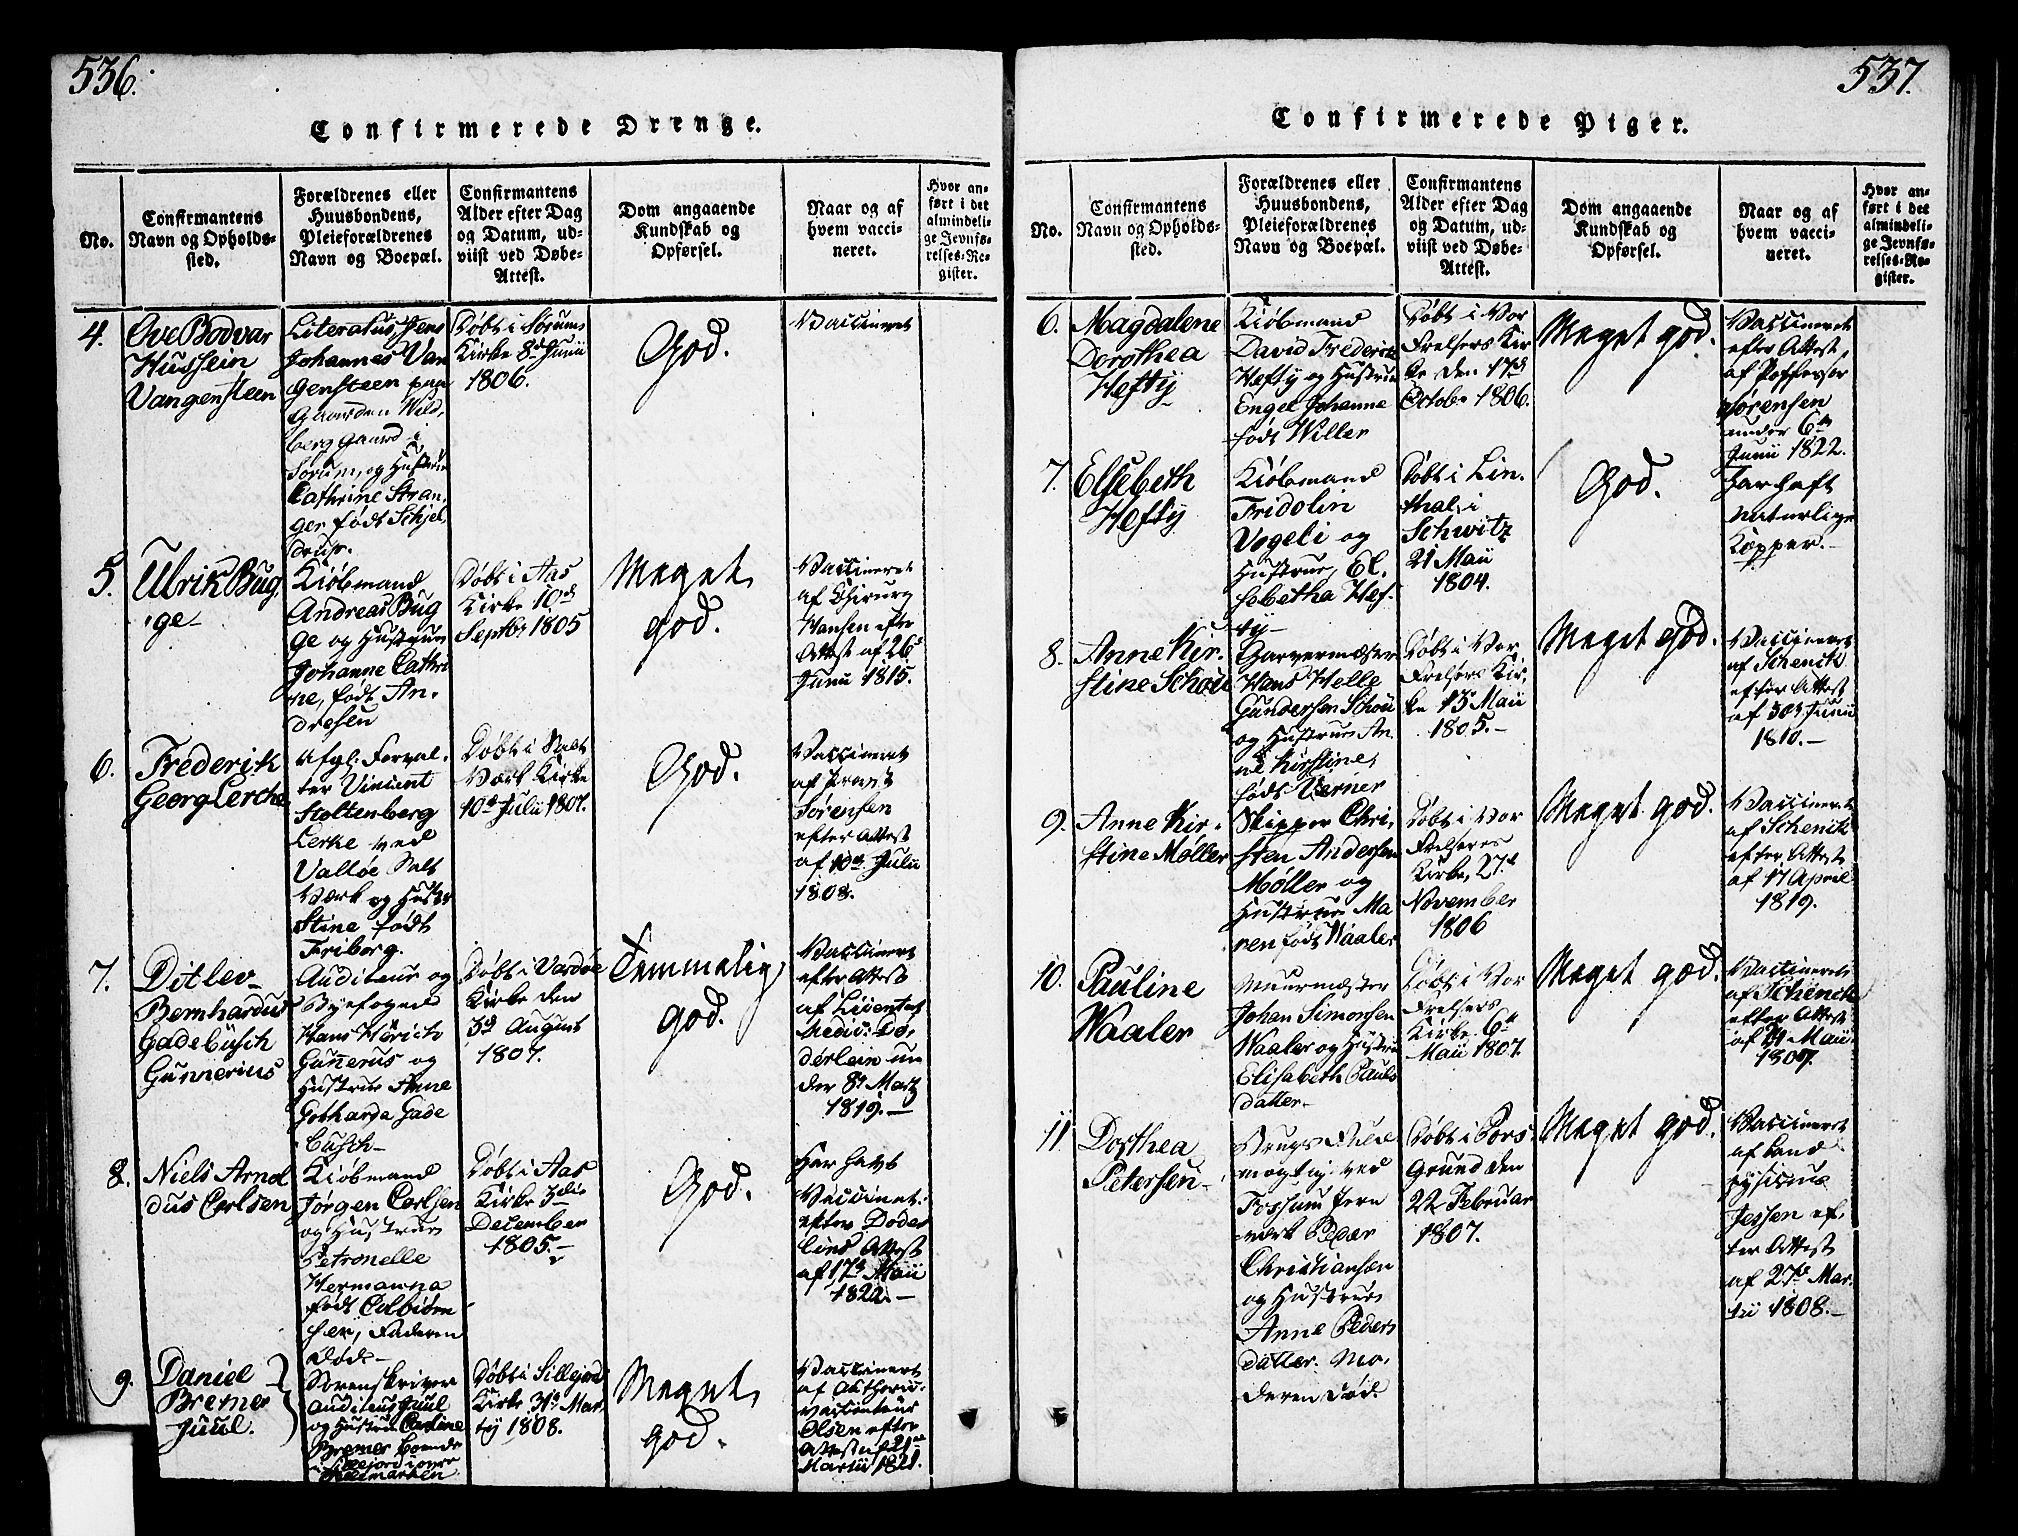 536.
Confirmerede Drenge.
No.
Confirmantens
Navn og Opholds-
sted.
Forældrenes eller
Huusbondens,
Pleieforældrenes
Navn og Boepæl.
Confirmantens
Alder efter Dag
og Datum, ud-
viist ved Døbe-
Attest.
Dom angaaende
Kundskab og
Opførsel.
Naar og af
hvem vacci-
neret.
Hvor an-
ført i det
almindeli-
ge Jevnfø-
relses-Re-
gister.
4.
Ove Bodvar
Husslein
Vangensteen
Literatus, Jens
Johannes Van
gensteen paa
Gaarden Wild,
berg gaard i
Sørum, og Hustrue
Cathrine Stran,
ger født Schjel,
drup.
Døbt i Sørums
Kirke 8d Junii
1806.
God.
Vaccineret
5.
Ulrik Bug,
ge
Kiøbmand
Andreas Bug
ge og Hustrue
Johanne Cathri
ne, født An-
dresen
Døbt i Aas
Kirke 10d
Septbr 1805
Meget
god.
Vaccineret
af Chirurg
Hansen efter
Attest af 26d
Junii 1815.
6.
Frederik
Georg Lerche
Afgl: Forval-
ter Vincent
Stoltenberg
Lerke ved
Valløe Salt
Værk og Hustr
Stine født
Friborg.
Døbt i Salt
Værk Kirke
10d Julii 1807.
God.
Vaccineret
af
Sørensen
efter Attest
af 10d Julii
1808.
7.
Ditlev
Bernhardus
Gadebusch
Gunnerius
Auditeur og
Byefoged
Hans Henrich
Gunnerus og
Hustrue Anne
Gotharda Gade
busch
Døbt i Vardøe
Kirke den
3d August
1807.
Temmelig
god.
Vaccineret
efter Attest
af Licentiat
Medic: Dø,
derlein un
der 8d Martz
1819.
8.
Niels Arnol
dus Carlsen
Kiøbmand
Jørgen Carlsen
og Hustrue
Petronelle
Hermanna
født Colbiørn
sen, Faderen
død
Døbt i Aas
Kirke 3die
December
1805.
God.
Har havt
Vaccinet:
efter Døder
leins Attest
af 17d Maii
1822.
9.
Daniel
Bremer
Juul.
Sorenskriver
Auditeur Juul
og Hustrue Caroline
Bremer boende
i Sillejord i øvre
Tellemarken
Døbt i Sillejord
Kirke 31d Mar
tij 1808.
Meget
god.
Vaccineret
af
Vaccinateur
Olsen efter
Attest af 21de
Martii 1821.
537.
Confirmerede Piger.
No.
Confirmantens
Navn og Opholds-
sted.
Forældrenes eller
Huusbondens,
Pleieforældrenes
Navn og Boepæl.
Confirmantens
Alder efter Dag
og Datum, ud-
viist ved Døbe-
Attest.
Dom angaaende
Kundskab og
Opførsel.
Naar og af
hvem vacci-
neret.
Hvor an-
ført i det
almindeli-
ge Jevnfø-
relses-Re-
gister.
6.
Magdalene
Dorothea
Hefty
Kiøbmand
David Frederick
Hefty og Hustrue
Engel Johanne
født Willer
Døbt i Vor
Frelsers Kir
ke den 17d
Octobr 1806.
Meget god.
Vaccineret
efter Attest
af Professor
Sørensen
under 6te
Junii 1822.
7.
Elsebeth
Hefty
Kiøbmand
Fridolin
Vogeli og
Hustrue, El.
sebetha Hef-
ty
Døbt i Lin.
thal, i
Schwitz
21 Maii
1804.
God.
Har haft
naturlige
Kopper.
8.
Anne Kir.
stine Schou
Garvermester
Hans Helle
Gundersen Schou
og Hustrue An,
ne Kirstine,
født Verner
Døbt i Vor
Frelsers Kir,
ke 13 Maii
1805.
Meget God.
Vaccineret
af Schenck
efter Attest
af 30d Junii
1810.
9.
Anne Kir.
stine Møller
Skipper Chri,
sten Andersen
Møller og
Hustrue Ma
ren født Waaler
Døbt i Vor
Frelseres
Kirke, 27d
November
1806
Meget god.
Vaccineret
af Schenck
efter Attest
af 17 April
1819.
10.
Pauline
Waaler
Muurmester
Johan Simonsen
Waaler og Hustrue
Elisabeth Pauls
datter
Døbt i Vor
Frelsers
Kirke 6te
Maii 1807.
Meget god.
Vaccineret
af Schenck
efter Attest
af Maii
1807.
11
Dorthea
Petersen
Brugs Fuld
mægtig ved
Fossum Jern
værk Peder
Christiansen
og Hustrue
Anne Peders
datter. Mo,
deren død.
Døbt i Pors
Grund den
22 Februar
1807.
Meget god.
Vaccineret
af Land
Fysicus
Jessen ef,
ter Attest
af 27de Mar
tii 1808.